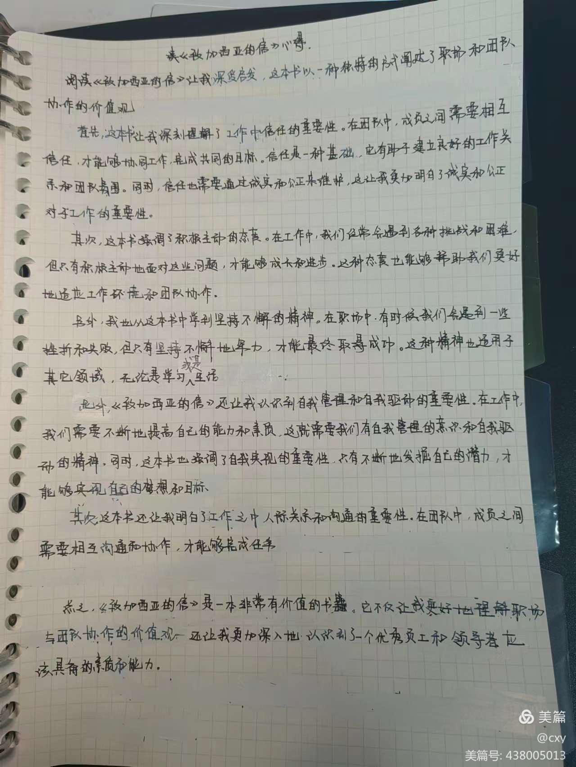 读《致加西亚的信》心得.
阅读《致加西亚的信》让我深受启发，这本书以一种独特的方式阐述了职场和团队
协作的价值观
首先，这本书让我深刻理解了工作中信任的重要性。在团队中，成员之间需要相互
信任，才能够协同工作，达成共同的目标。信任是一种基础，它有助于建立良好的工作关
系和团队氛围。同时，信任也需要通过诚实和公正来维护，这让我更加明白了诚实和公正
对于工作的重要性。
其次，这本书强调了积极主动的态度。在工作中，我们经常会遇到各种挑战和困难，
但只有积极主动地面对这些问题，才能够成长和进步。这种态度也能够帮助我们更好
地适应工作环境和团队协作。
另外，我也从这本书中学到坚持不懈的精神。在职场中，有时候我们会遇到一些
挫折和失败，但只有坚持不懈地努力，才能最终取得成功。这种精神也适用于
其它领域，无论是学习或是人生活
此外，《致加西亚的信》还让我认识到自我管理和自我驱动的重要性。在工作中，
我们需要不断地提高自己的能力和素质，这就需要我们有自我管理的意识和自我驱
动的精神。同时，这本书也强调了自我实现的重要性，只有不断地发掘自己的潜力，才
能够实现自己的梦想和目标.
其次，这本书还让我明白了工作之中人际关系和沟通的重要性。在团队中，成员之间
需要相互沟通和协作，才能够完成任务
总之，《致加西亚的信》是一本非常有价值的书籍。它不仅让我更好地理解职场
与团队协作的价值观 还让我更加深入地认识到了一个优秀员工和领导者应
该具备的素质和能力。
美篇
@cxy
美篇号: 438005013